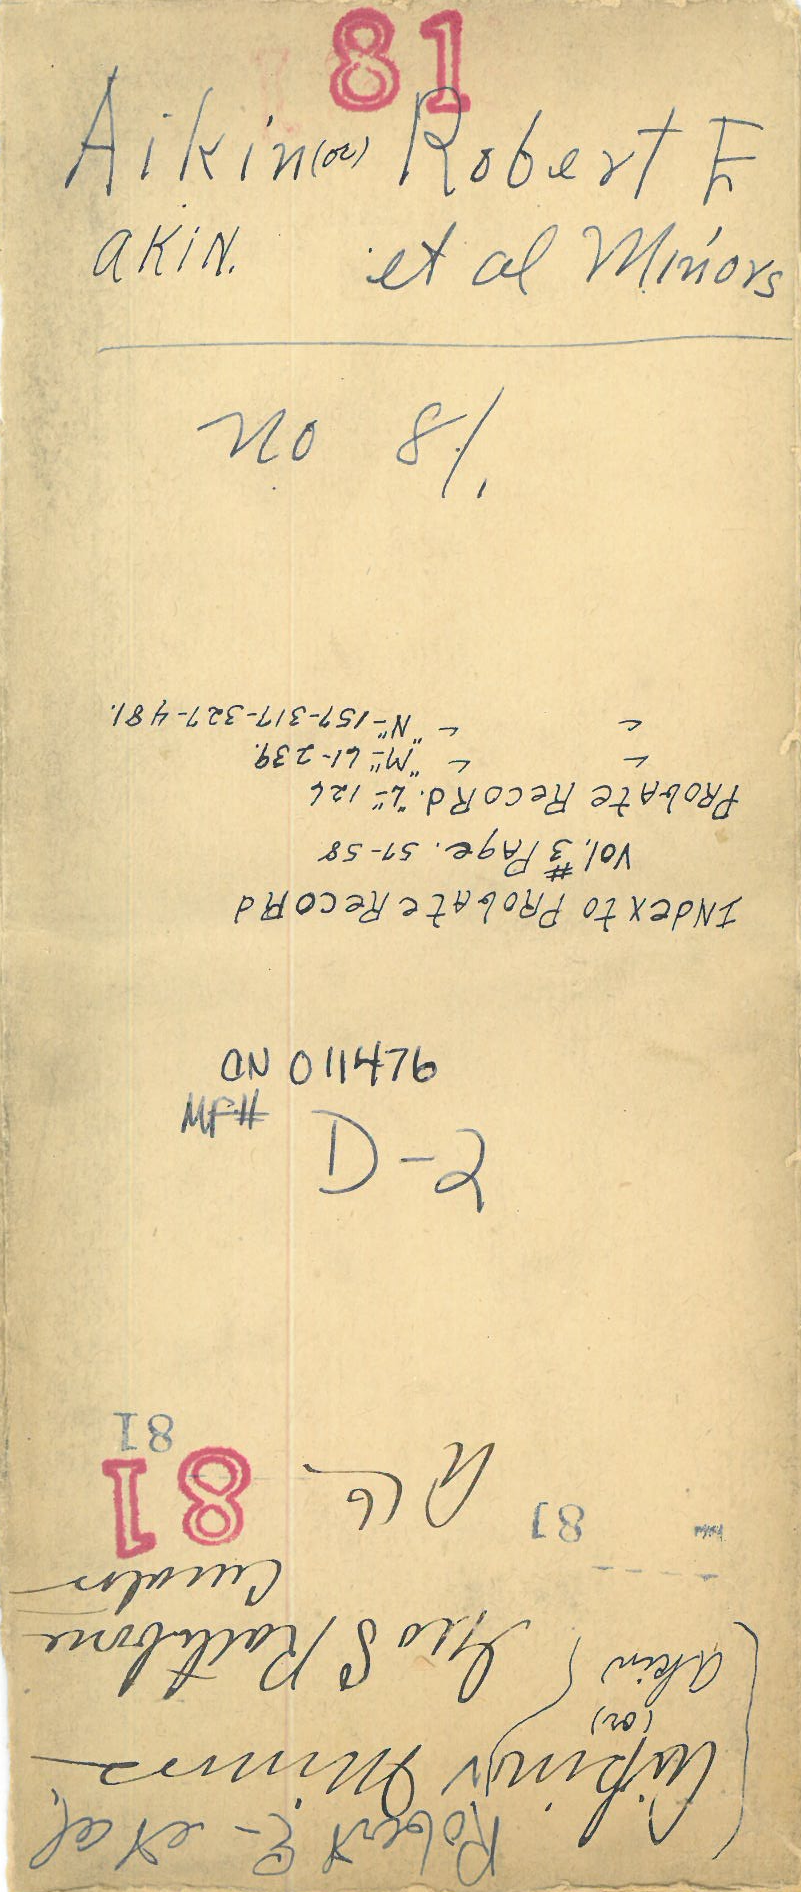 81
Aikin (or) Robert E
AKiN. et al Minors
No 81.
Robert E. et al,
Aikin Minors
(or)
Akin Geo S Rathbone
Curator
81
81
81
D-2
MF#
974110 ND
INdex to PRObAte RecoRd
Vol, #3 PAge. 57-58
PRObAte RecoRd. "L" - 126
" " "M" - 61-239.
" " "N" - 157-317-327-481.